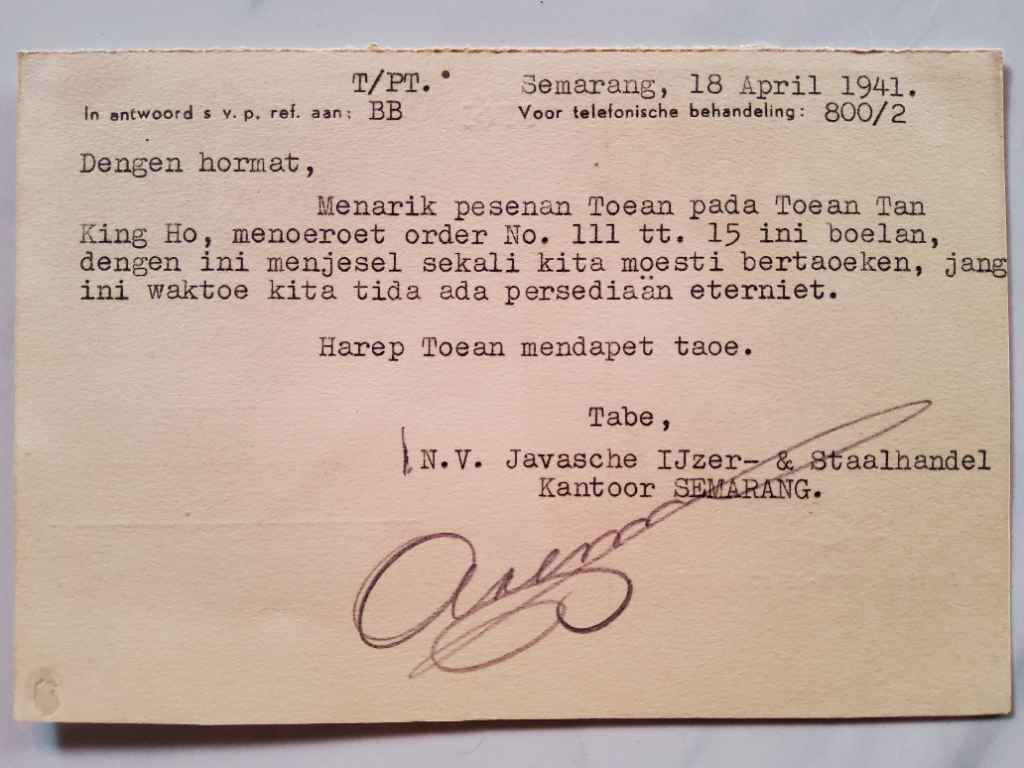 T/PT. Semarang, 18 April 1941.
In antwoord s v. p. ref. aan: BB Voor telefonische behandeling: 800/2
Dengen hormat,
Menarik pesenan Toean pada Toean Tan
King Ho, menoeroet order No. 111 tt. 15 ini boelan,
dengen ini menjesel sekali kita moesti bertaoeken, jang
ini waktoe kita tida ada persediaän eterniet.
Harep Toean mendapet taoe.
Tabe,
N.V. Javasche IJzer- & Staalhandel
Kantoor SEMARANG.